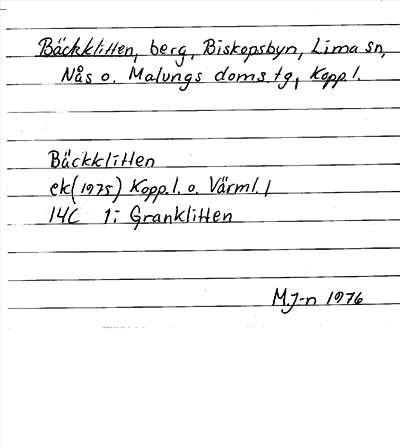 Bäckklitten, berg, Biskopsbyn, Lima sn,
Nås o. Malungs doms.tg, Kopp.l.
Bäckklitten
ek(1975) Kopp.l. o. Värml.l
14C 1: Granklitten
M.J-n 1976